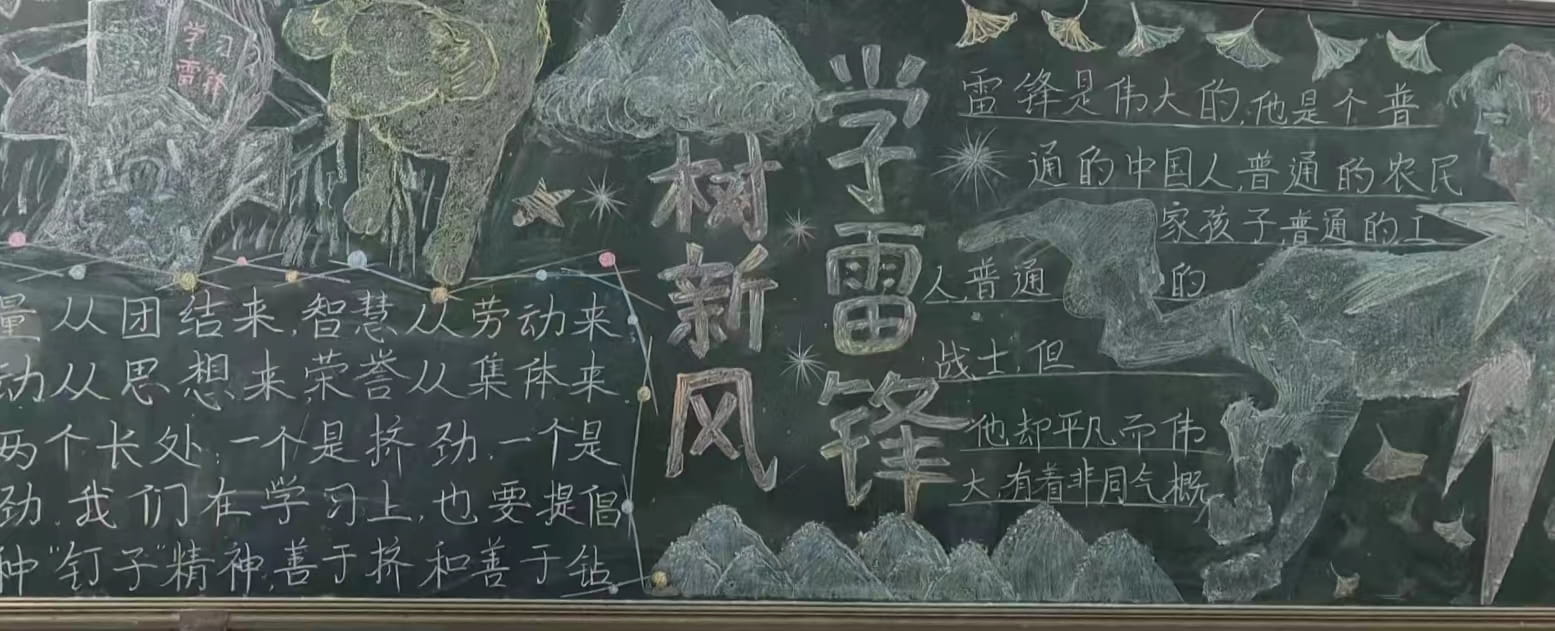 学习
雷锋
学雷锋
树新风
雷锋是伟大的,他是个普
通的中国人,普通的农民
家孩子,普通的工
人,普通 的
战士,但
他却平凡而伟
大,有着非同气概
量从团结来,智慧从劳动来
动从思想来荣誉从集体来
两个长处,一个是挤劲,一个是
劲.我们在学习上,也要提倡
种"钉子"精神,善于挤和善于钻